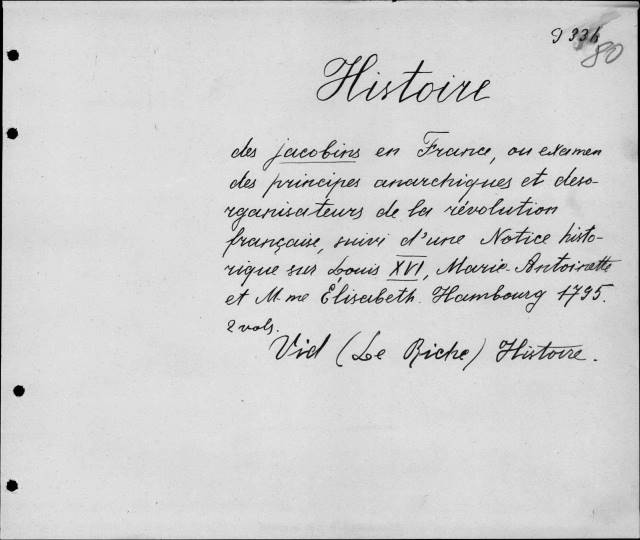 80
Histoire
des jacobins en France, ou examen
des principes anarchiques et deso-
rganisateurs de la révolution
française, suivi d'une Notice histo-
rique sur Louis XVI, Marie-Antoinette
et M-me Élisabeth. Hambourg 1795.
2 vols.
Vid (Le Riche) Histoire.